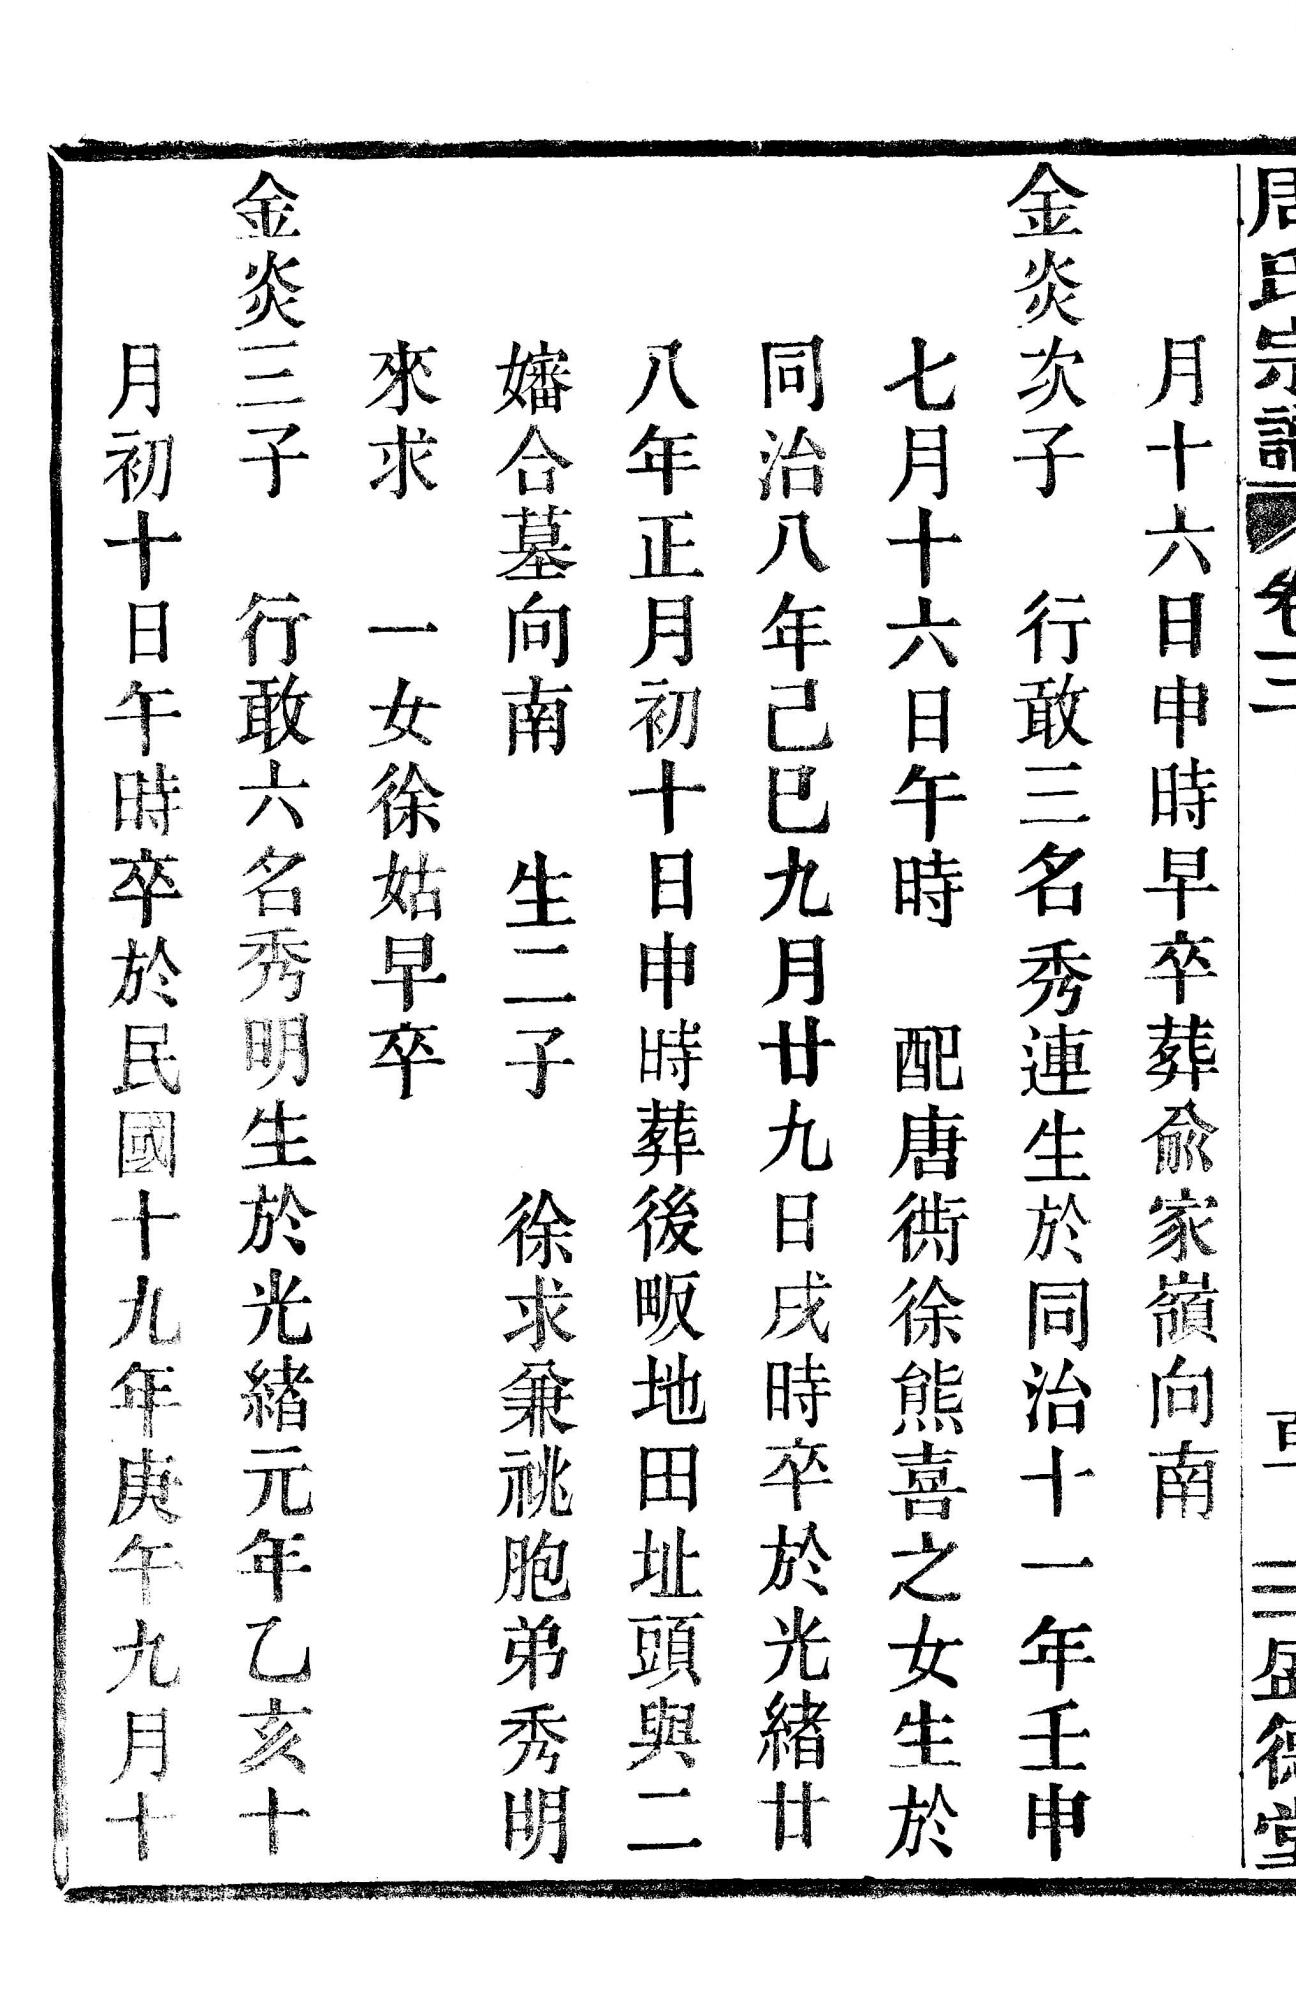 周氏宗譜 卷三 三盛德堂
月十六日申時早卒葬俞家嶺向南
金炎次子 行敢三名秀連生於同治十一年壬申
七月十六日午時 配唐衖徐熊喜之女生於
同治八年己巳九月廿九日戌時卒於光緒廿
八年正月初十日申時葬後畈地田址頭與二
嬸合墓向南 生二子 徐求兼祧胞弟秀明
來求 一女徐姑早卒
金炎三子 行敢六名秀明生於光緒元年乙亥十
月初十日午時卒於民國十九年庚午九月十